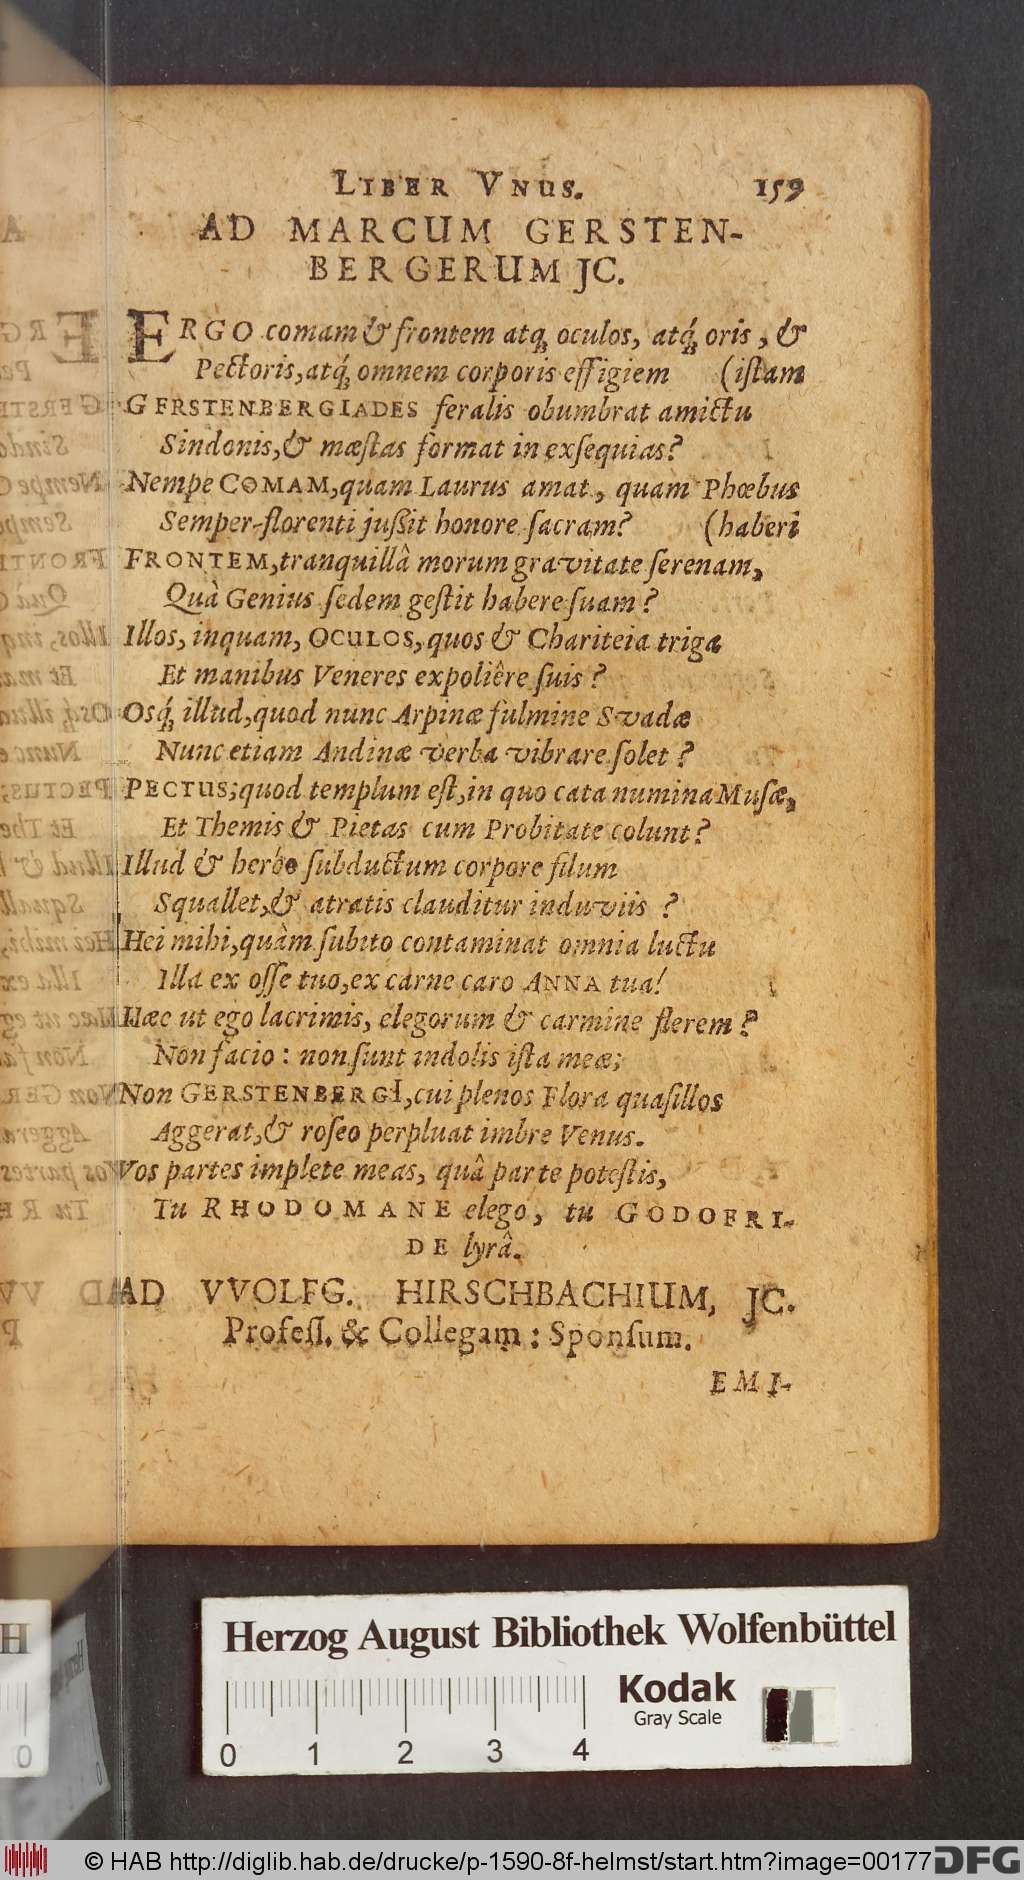 LIBER VNUS. 159
AD MARCUM GERSTEN-
BERGERUM JC.
ERGO comam & frontem atq́ꝫ oculos, atq́ꝫ oris, &
Pectoris, atq́ꝫ omnem corporis effigiem (iſtam
GERSTENBERGIADES feralis obumbrat amictu
Sindonis, & mæſtas format in exſequias?
Nempe COMAM, quam Laurus amat, quam Phœbus
Semper-florenti juſſit honore ſacram? (haberi
FRONTEM, tranquillâ morum gravitate ſerenam,
Quà Genius ſedem geſtit habere ſuam?
Illos, inquam, OCULOS, quos & Chariteia triga
Et manibus Veneres expoliêre ſuis?
Osq́ꝫ illud, quod nunc Arpinæ fulmine Svadæ
Nunc etiam Andinæ verba vibrare ſolet?
PECTUS; quod templum eſt, in quo cata numina Muſæ,
Et Themis & Pietas cum Probitate colunt?
Illud & heroo ſubductum corpore filum
Squallet, & atratis clauditur induviis?
Hei mihi, quàm ſubito contaminat omnia luctu
Illa ex oſſe tuo, ex carne caro ANNA tua!
Hæc ut ego lacrimis, elegorum & carmine flerem?
Non facio: non ſunt indolis iſta meæ;
Non GERSTENBERGI, cui plenos Flora quaſillos
Aggerat, & roſeo perpluat imbre Venus.
Vos partes implete meas, quâ parte poteſtis,
Tu RHODOMANE elego, tu GODOFRI-
DE lyrâ.
AD VVOLFG. HIRSCHBACHIUM, JC.
Profeſſ. & Collegam: Sponſum.
EMI-
Herzog August Bibliothek Wolfenbüttel
Kodak
Gray Scale
0 1 2 3 4
© HAB http://diglib.hab.de/drucke/p-1590-8f-helmst/start.htm?image=00177
DFG